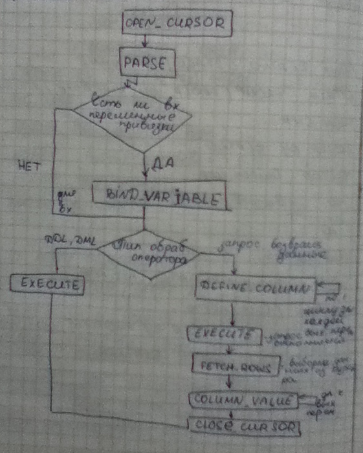 OPEN_CURSOR
PARSE
Есть ли вх
переменные
привязки
НЕТ
ДА
BIND_VARIABLE
для
вх
DDL, DML
Тип обраб
оператора
запрос возвращ
данные
EXECUTE
DEFINE_COLUMN
каждой
EXECUTE
запрос
FETCH_ROWS
выборка
COLUMN_VALUE
CLOSE_CURSOR